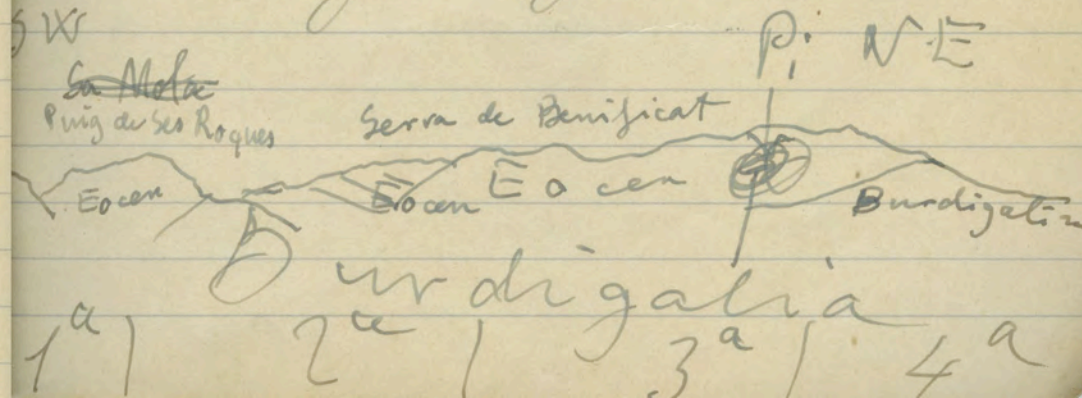 SW
Pi NE
Sa Mola
Puig de ses Roques
Serra de Benificat
Eocen
Eocen
Eocen
Burdigalia
Burdigalia
1a | 2a | 3a | 4a